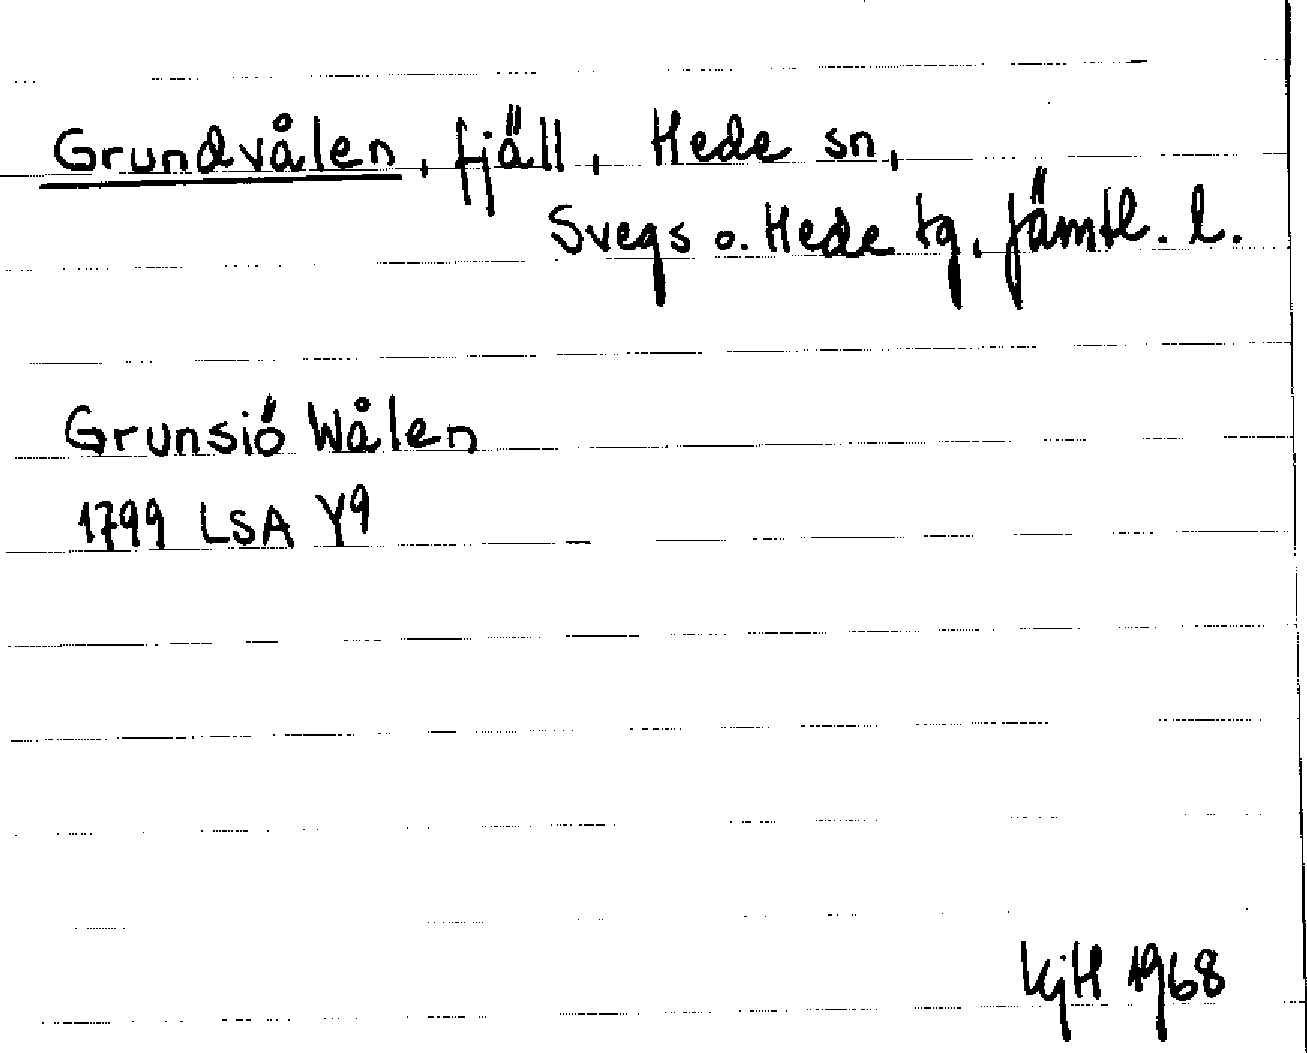 Grundvålen, fjäll, Hede sn,
Svegs o. Hede tg. Jämtl. l.
Grunsiö Wålen
1799 LSA Y9
KjH 1968